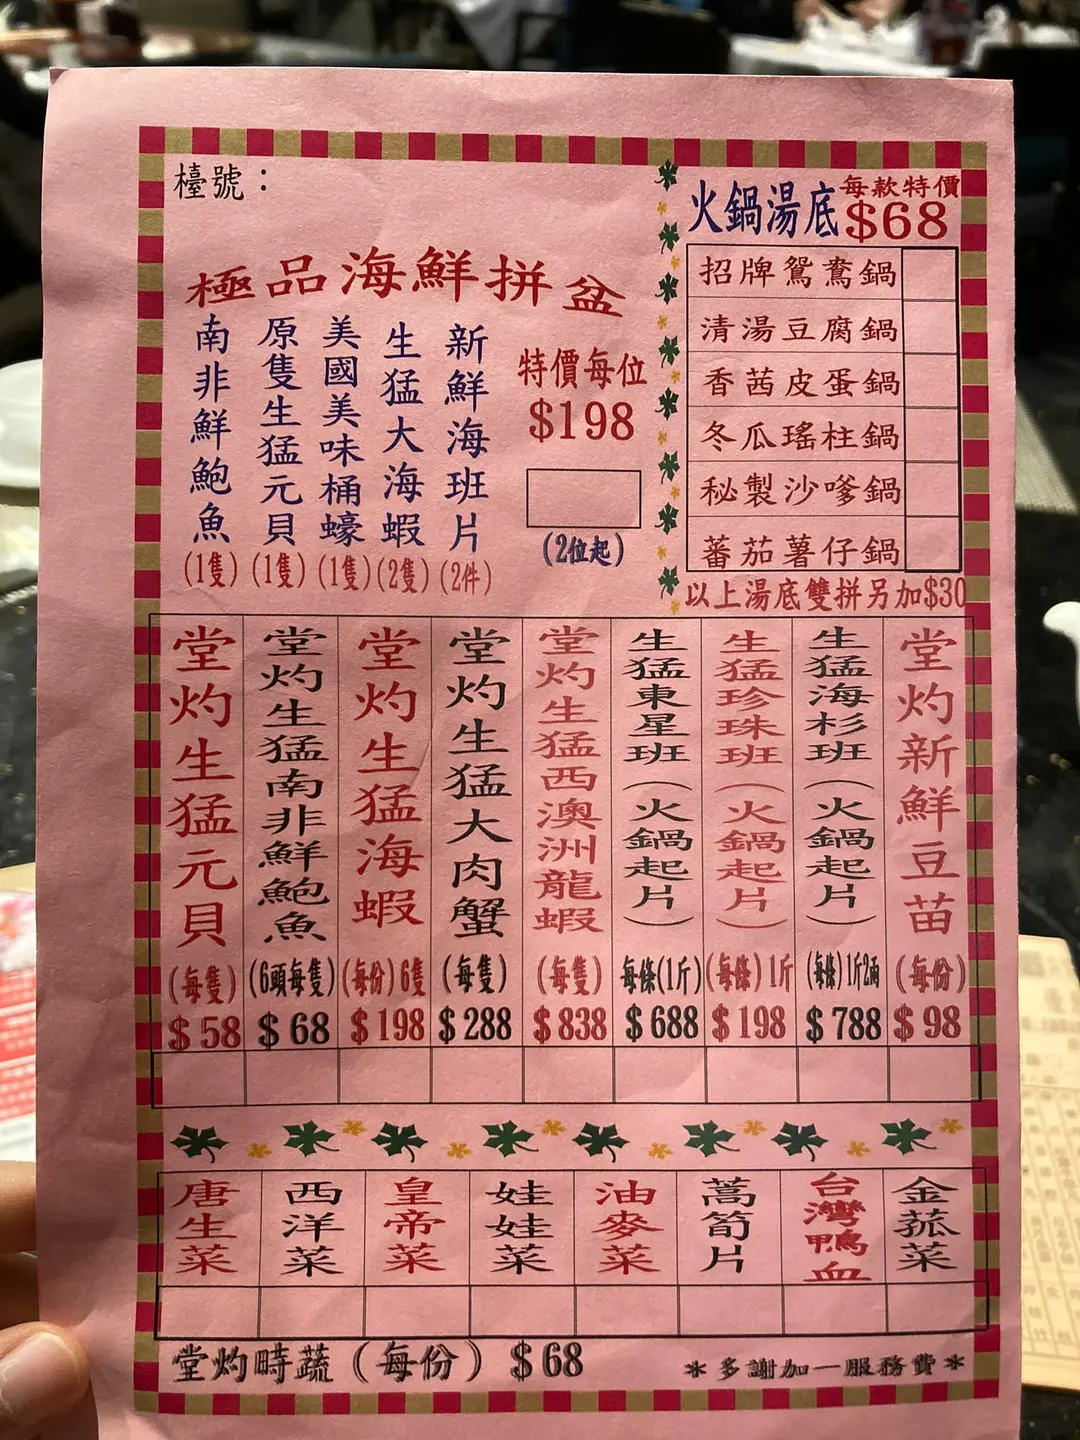 檯號：
極品海鮮拼盆
南非鮮鮑魚
(1隻)
原隻生猛元貝
(1隻)
美國美味桶蠔
(1隻)
生猛大海蝦
(2隻)
新鮮海班片
(2件)
特價每位
$198
(2位起)
火鍋湯底
每款特價
$68
招牌鴛鴦鍋
清湯豆腐鍋
香茜皮蛋鍋
冬瓜瑤柱鍋
秘製沙嗲鍋
蕃茄薯仔鍋
以上湯底雙拼另加$30
堂灼生猛元貝
(每隻)
$58
堂灼生猛南非鮮鮑魚
(6頭每隻)
$68
堂灼生猛海蝦
(每份)6隻
$198
堂灼生猛大肉蟹
(每隻)
$288
堂灼生猛西澳洲龍蝦
(每隻)
$838
生猛東星班(火鍋起片)
每條(1斤)
$688
生猛珍珠班(火鍋起片)
(每條)1斤
$198
生猛海杉班(火鍋起片)
(每條)1斤2兩
$788
堂灼新鮮豆苗
(每份)
$98
唐生菜
西洋菜
皇帝菜
娃娃菜
油麥菜
萵筍片
台灣鴨血
金菰菜
堂灼時蔬(每份)$68
*多謝加一服務費*